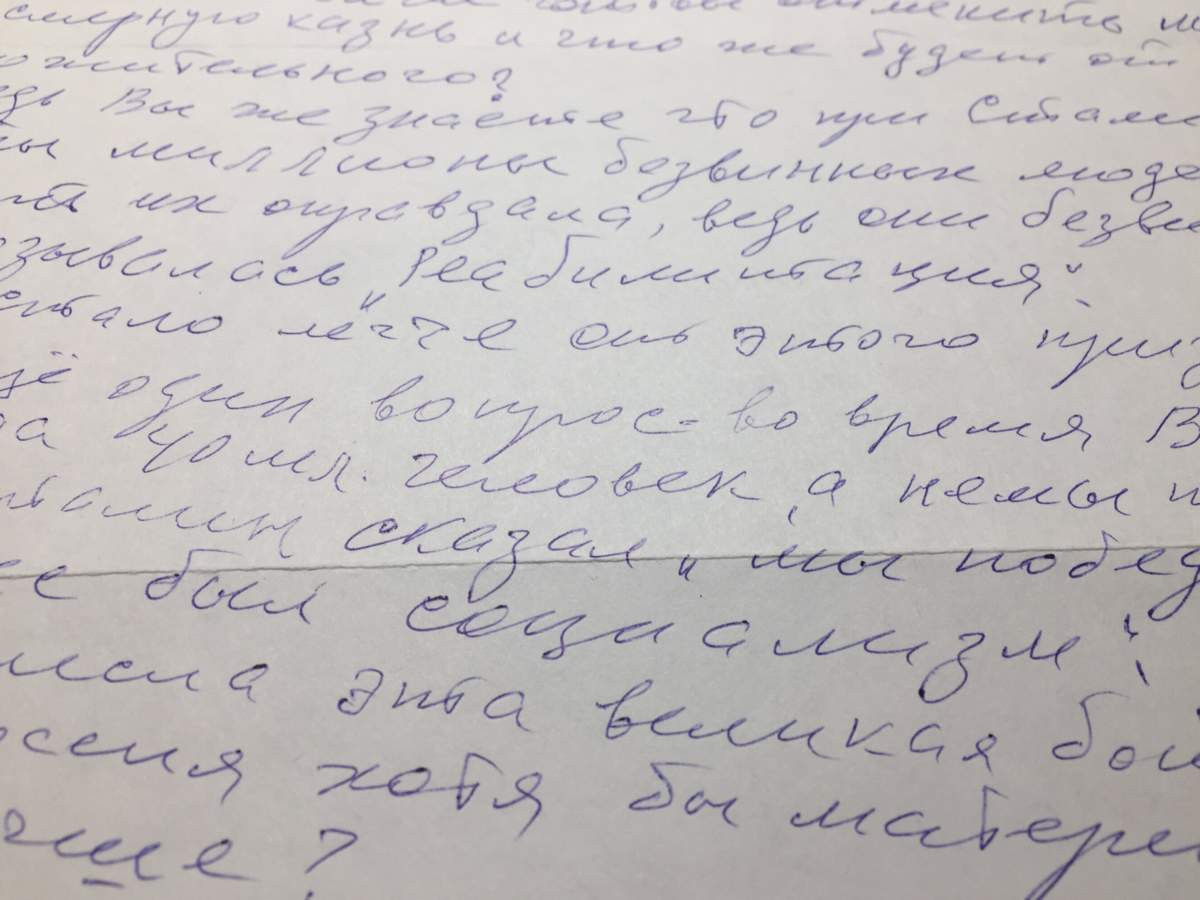 отменить
смертную казнь и что же будет от
ожительного?
едь Вы же знаете что при Стали
ны миллионы безвинных люде
их оправдала, ведь они безви
зывалась „Реабилитация".
стало легче от этого приз
щё один вопрос-во время В
40 мл. человек, а немы
талин сказал „мы побед
се был социализм".
эта великая бой
оссия хотя бы матери
чше?